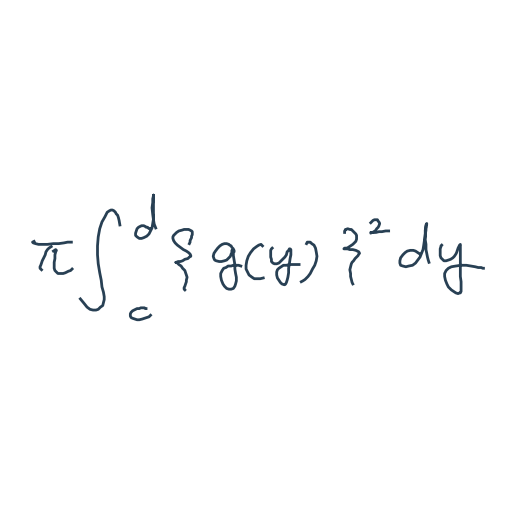 $\pi \int_{c}^{d} \{ g(y) \}^{2} dy$